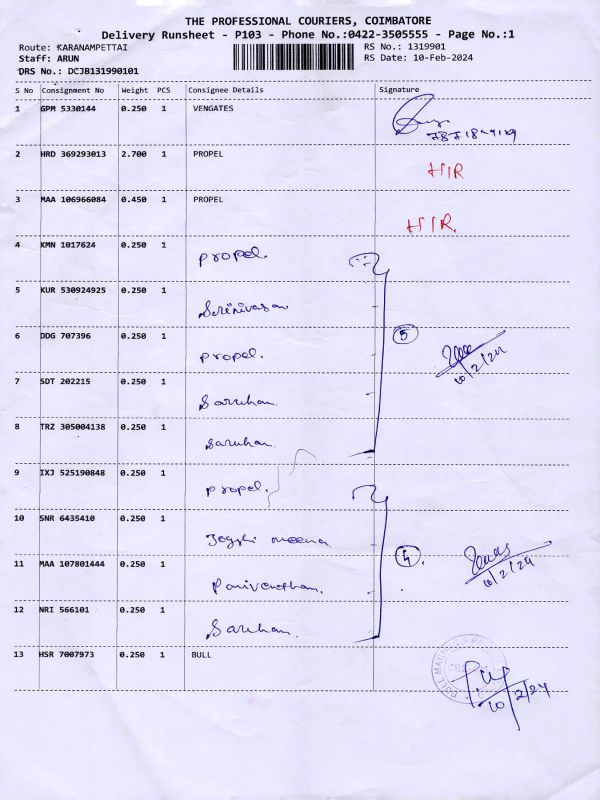 THE PROFESSIONAL COURIERS, COIMBATORE
Delivery Runsheet - P103 - Phone No.:0422-3505555 - Page No.:1
Route: KARANAMPETTAI RS No.: 1319901
Staff: ARUN RS Date: 10-Feb-2024
DRS No.: DCJB131990101
S No Consignment No Weight PCS Consignee Details Signature
1 GPM 5330144 0.250 1 VENGATES
2 HRD 369293013 2.700 1 PROPEL HIR
3 MAA 106966084 0.450 1 PROPEL HIR.
4 KMN 1017624 0.250 1 propel.
5 KUR 530924925 0.250 1 Srinivasan
6 DDG 707396 0.250 1 propel. 5
10/2/24
7 SDT 202215 0.250 1 Saruhan.
8 TRZ 305004138 0.250 1 Saruhan.
9 IXJ 525190848 0.250 1 propel.
10 SNR 6435410 0.250 1 meena
11 MAA 107801444 0.250 1 4.
10/2/24
12 NRI 566101 0.250 1 Saruhan.
13 HSR 7007973 0.250 1 BULL
10/2/24